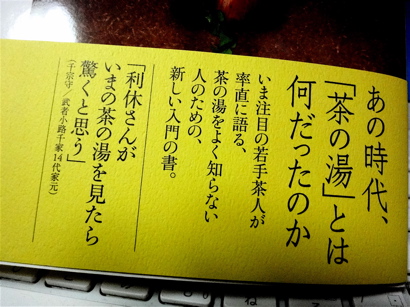 あの時代、
「茶の湯」とは
何だったのか
いま注目の若手茶人が
率直に語る、
茶の湯をよく知らない
人のための、
新しい入門の書。
「利休さんが
いまの茶の湯を見たら
驚くと思う」
(千宗守/武者小路千家14代家元)